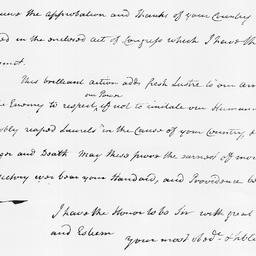 the approbation and thanks of your Country
in the enclosed Act of Congress which I have the
This brilliant action adds fresh Lustre to our Arms
the Enemy to respect if not to imitate our Humanity
our Power
reaped Laurels in the cause of your Country, &
and Death may these prove the earnest of more
Victory ever bear your Standard, and Providence be
I have the Honor to be Sir with great
and Esteem
your most obedt. &